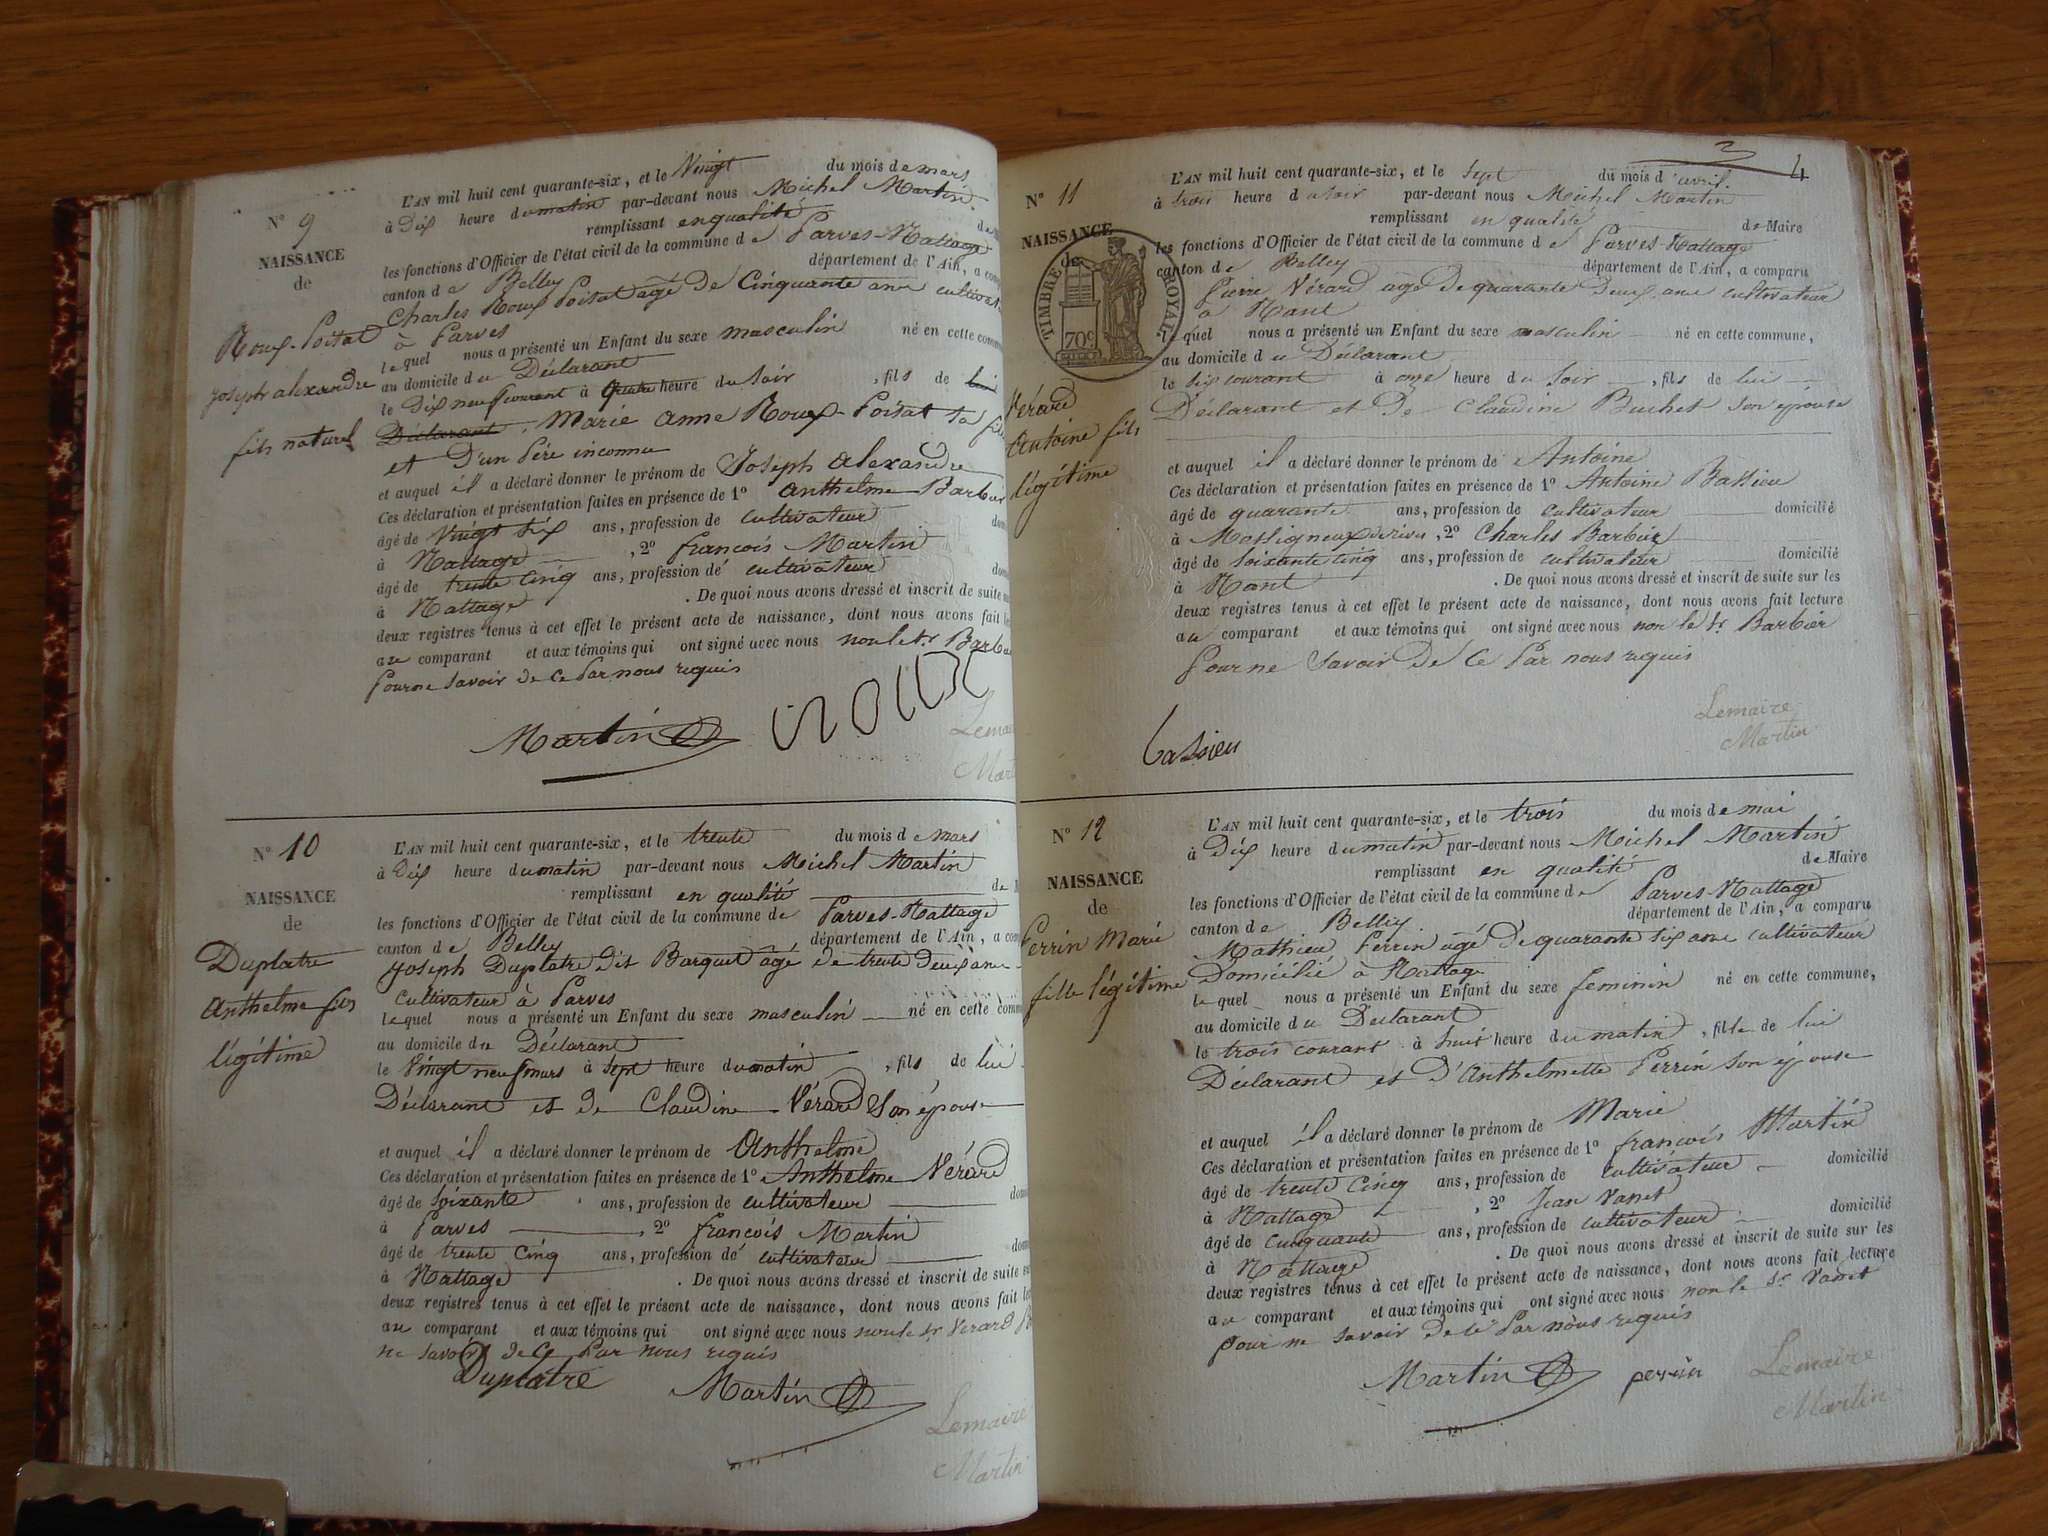 N° 9
NAISSANCE
de
Roux-Poisat
joseph alexandre
fils naturel
L'AN mil huit cent quarante-six, et le Vingt du mois de mars
à Dix heure du matin par-devant nous Michel Martin
remplissant en qualité de
les fonctions d'Officier de l'état civil de la commune de Parves-Nattage
canton de Belley département de l'Ain, a comp
Charles Roux Poisat agé de Cinquante ans cultivat
à Parves
lequel nous a présenté un Enfant du sexe masculin né en cette comm
au domicile du Déclarant
le Dix neuf courant à quatre heure du soir, fils de lui
Déclarant, Marie Anne Roux-Poisat sa fil
et D'un Père inconnu
et auquel il a déclaré donner le prénom de Joseph alexandre
Ces déclaration et présentation faites en présence de 1° Anthelme Barbier
âgé de Vingt six ans, profession de cultivateur dom
à Nattage, 2° françois Martin
âgé de trente cinq ans, profession de cultivateur dom
à Nattage. De quoi nous avons dressé et inscrit de suite su
deux registres tenus à cet effet le présent acte de naissance, dont nous avons fait le
au comparant et aux témoins qui ont signé avec nous non le sr Barbi
Pour ne savoir de ce Par nous requis
Martin
Lemaire
Martin
N° 10
NAISSANCE
de
Duplatre
Anthelme fils
légitime
L'AN mil huit cent quarante-six, et le trente du mois de mars
à Dix heure du matin par-devant nous Michel Martin
remplissant en qualité de
les fonctions d'Officier de l'état civil de la commune de Parves-Nattage
canton de Belley département de l'Ain, a com
Joseph Duplatre dit Barquet âgé de trente deux ans
cultivateur à Parves
lequel nous a présenté un Enfant du sexe masculin né en cette comm
au domicile du Déclarant
le Vingt neuf mars à sept heure du matin, fils de lui
Déclarant et de Claudine Vérard Son épouse
et auquel il a déclaré donner le prénom de Anthelme
Ces déclaration et présentation faites en présence de 1° Anthelme Vérard
âgé de soixante ans, profession de cultivateur dom
à Parves, 2° françois Martin
âgé de trente cinq ans, profession de cultivateur dom
à Nattage. De quoi nous avons dressé et inscrit de suite su
deux registres tenus à cet effet le présent acte de naissance, dont nous avons fait le
au comparant et aux témoins qui ont signé avec nous non le sr Vérard P
ne savoir de ce Par nous requis
Duplatre Martin
Lemaire
Martin
3 4
N° 11
NAISSANCE
de
TIMBRE ROYAL
70c
Vérard
Antoine fils
légitime
L'AN mil huit cent quarante-six, et le sept du mois d'avril
à trois heure du soir par-devant nous Michel Martin
remplissant en qualité de Maire
les fonctions d'Officier de l'état civil de la commune de Parves-Nattage
canton de Belley département de l'Ain, a comparu
Pierre Vérard agé de quarante deux ans cultivateur
à Nant
lequel nous a présenté un Enfant du sexe masculin né en cette commune,
au domicile du Déclarant
le six courant à onze heure du soir, fils de lui
Déclarant et De Claudine Buchet son épouse
et auquel il a déclaré donner le prénom de Antoine
Ces déclaration et présentation faites en présence de 1° Antoine Bassieu
âgé de quarante ans, profession de cultivateur domicilié
à Massigneux de rives, 2° Charles Barbier
âgé de soixante cinq ans, profession de cultivateur domicilié
à Nant. De quoi nous avons dressé et inscrit de suite sur les
deux registres tenus à cet effet le présent acte de naissance, dont nous avons fait lecture
au comparant et aux témoins qui ont signé avec nous non le sr Barbier
Pour ne savoir De Ce Par nous requis
bassieu
Lemaire
Martin
N° 12
NAISSANCE
de
Perrin Marie
fille légitime
L'AN mil huit cent quarante-six, et le trois du mois de mai
à Dix heure du matin par-devant nous Michel Martin
remplissant en qualité de Maire
les fonctions d'Officier de l'état civil de la commune de Parves-Nattage
canton de Belley département de l'Ain, a comparu
Mathieu Perrin agé De quarante six ans cultivateur
Domicilié à Nattage
lequel nous a présenté un Enfant du sexe feminin né en cette commune,
au domicile du Déclarant
le trois courant à huit heure du matin, fille de lui
Déclarant et D'Anthelmette Perrin son épouse
et auquel il a déclaré donner le prénom de Marie
Ces déclaration et présentation faites en présence de 1° françois Martin
âgé de trente cinq ans, profession de cultivateur domicilié
à Nattage, 2° Jean Vasset
âgé de cinquante ans, profession de cultivateur domicilié
à Nattage. De quoi nous avons dressé et inscrit de suite sur les
deux registres tenus à cet effet le présent acte de naissance, dont nous avons fait lecture
au comparant et aux témoins qui ont signé avec nous non le sr Vasset
pour ne savoir de ce Par nous requis
Martin perrin
Lemaire
Martin